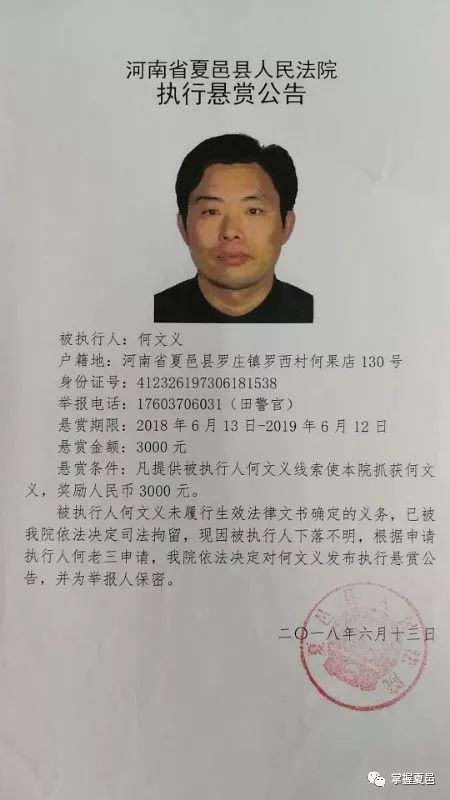 河南省夏邑县人民法院
执行悬赏公告
被执行人：何文义
户籍地：河南省夏邑县罗庄镇罗西村何果店130号
身份证号：412326197306181538
举报电话：17603706031（田警官）
悬赏期限：2018年6月13日-2019年6月12日
悬赏金额：3000元
悬赏条件：凡提供被执行人何文义线索使本院抓获何文
义，奖励人民币3000元。
被执行人何文义未履行生效法律文书确定的义务，已被
我院依法决定司法拘留，现因被执行人下落不明，根据申请
执行人何老三申请，我院依法决定对何文义发布执行悬赏公
告，并为举报人保密。
二〇一八年六月十三日
夏邑县人民法院
掌握夏邑